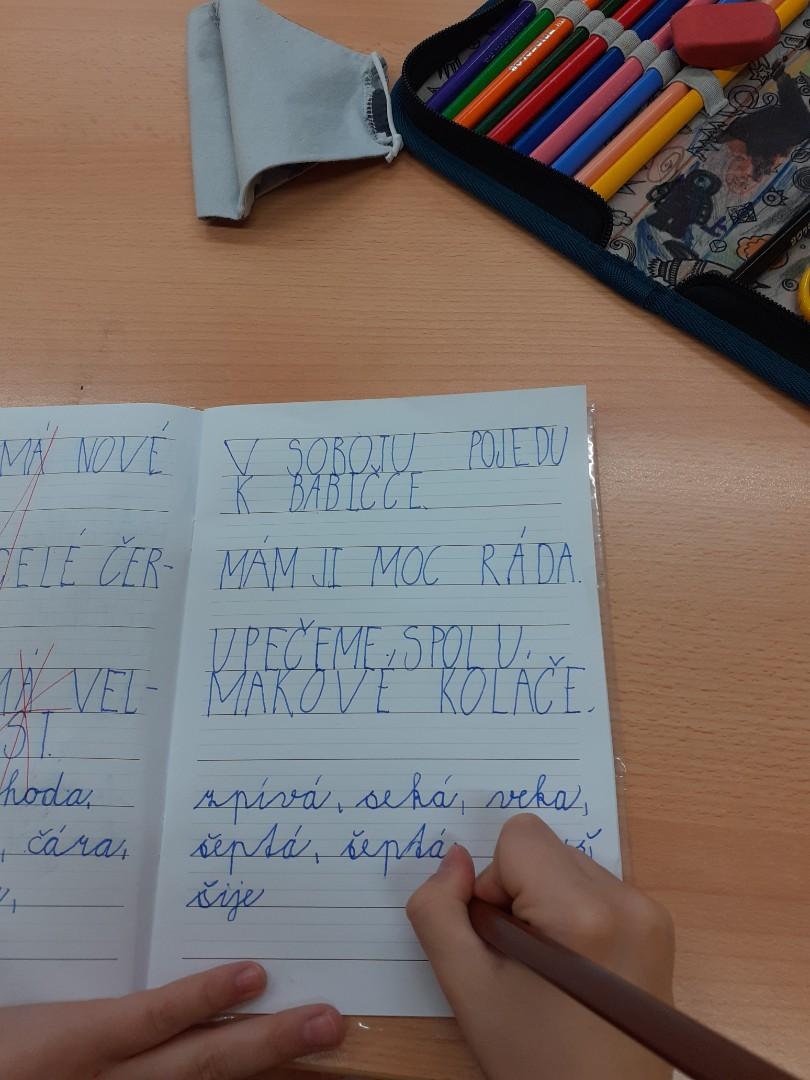 MÁ NOVÉ
ELÉ ČER-
MÁ VEL-
hoda,
, čára,
V SOBOJU POJEDU
K BABIČCE.
MÁM JI MOC RÁDA.
UPEČEME, SPOLU,
MAKOVÉ KOLÁČE.
zpívá, seká, veka,
šeptá, šeptá
šije